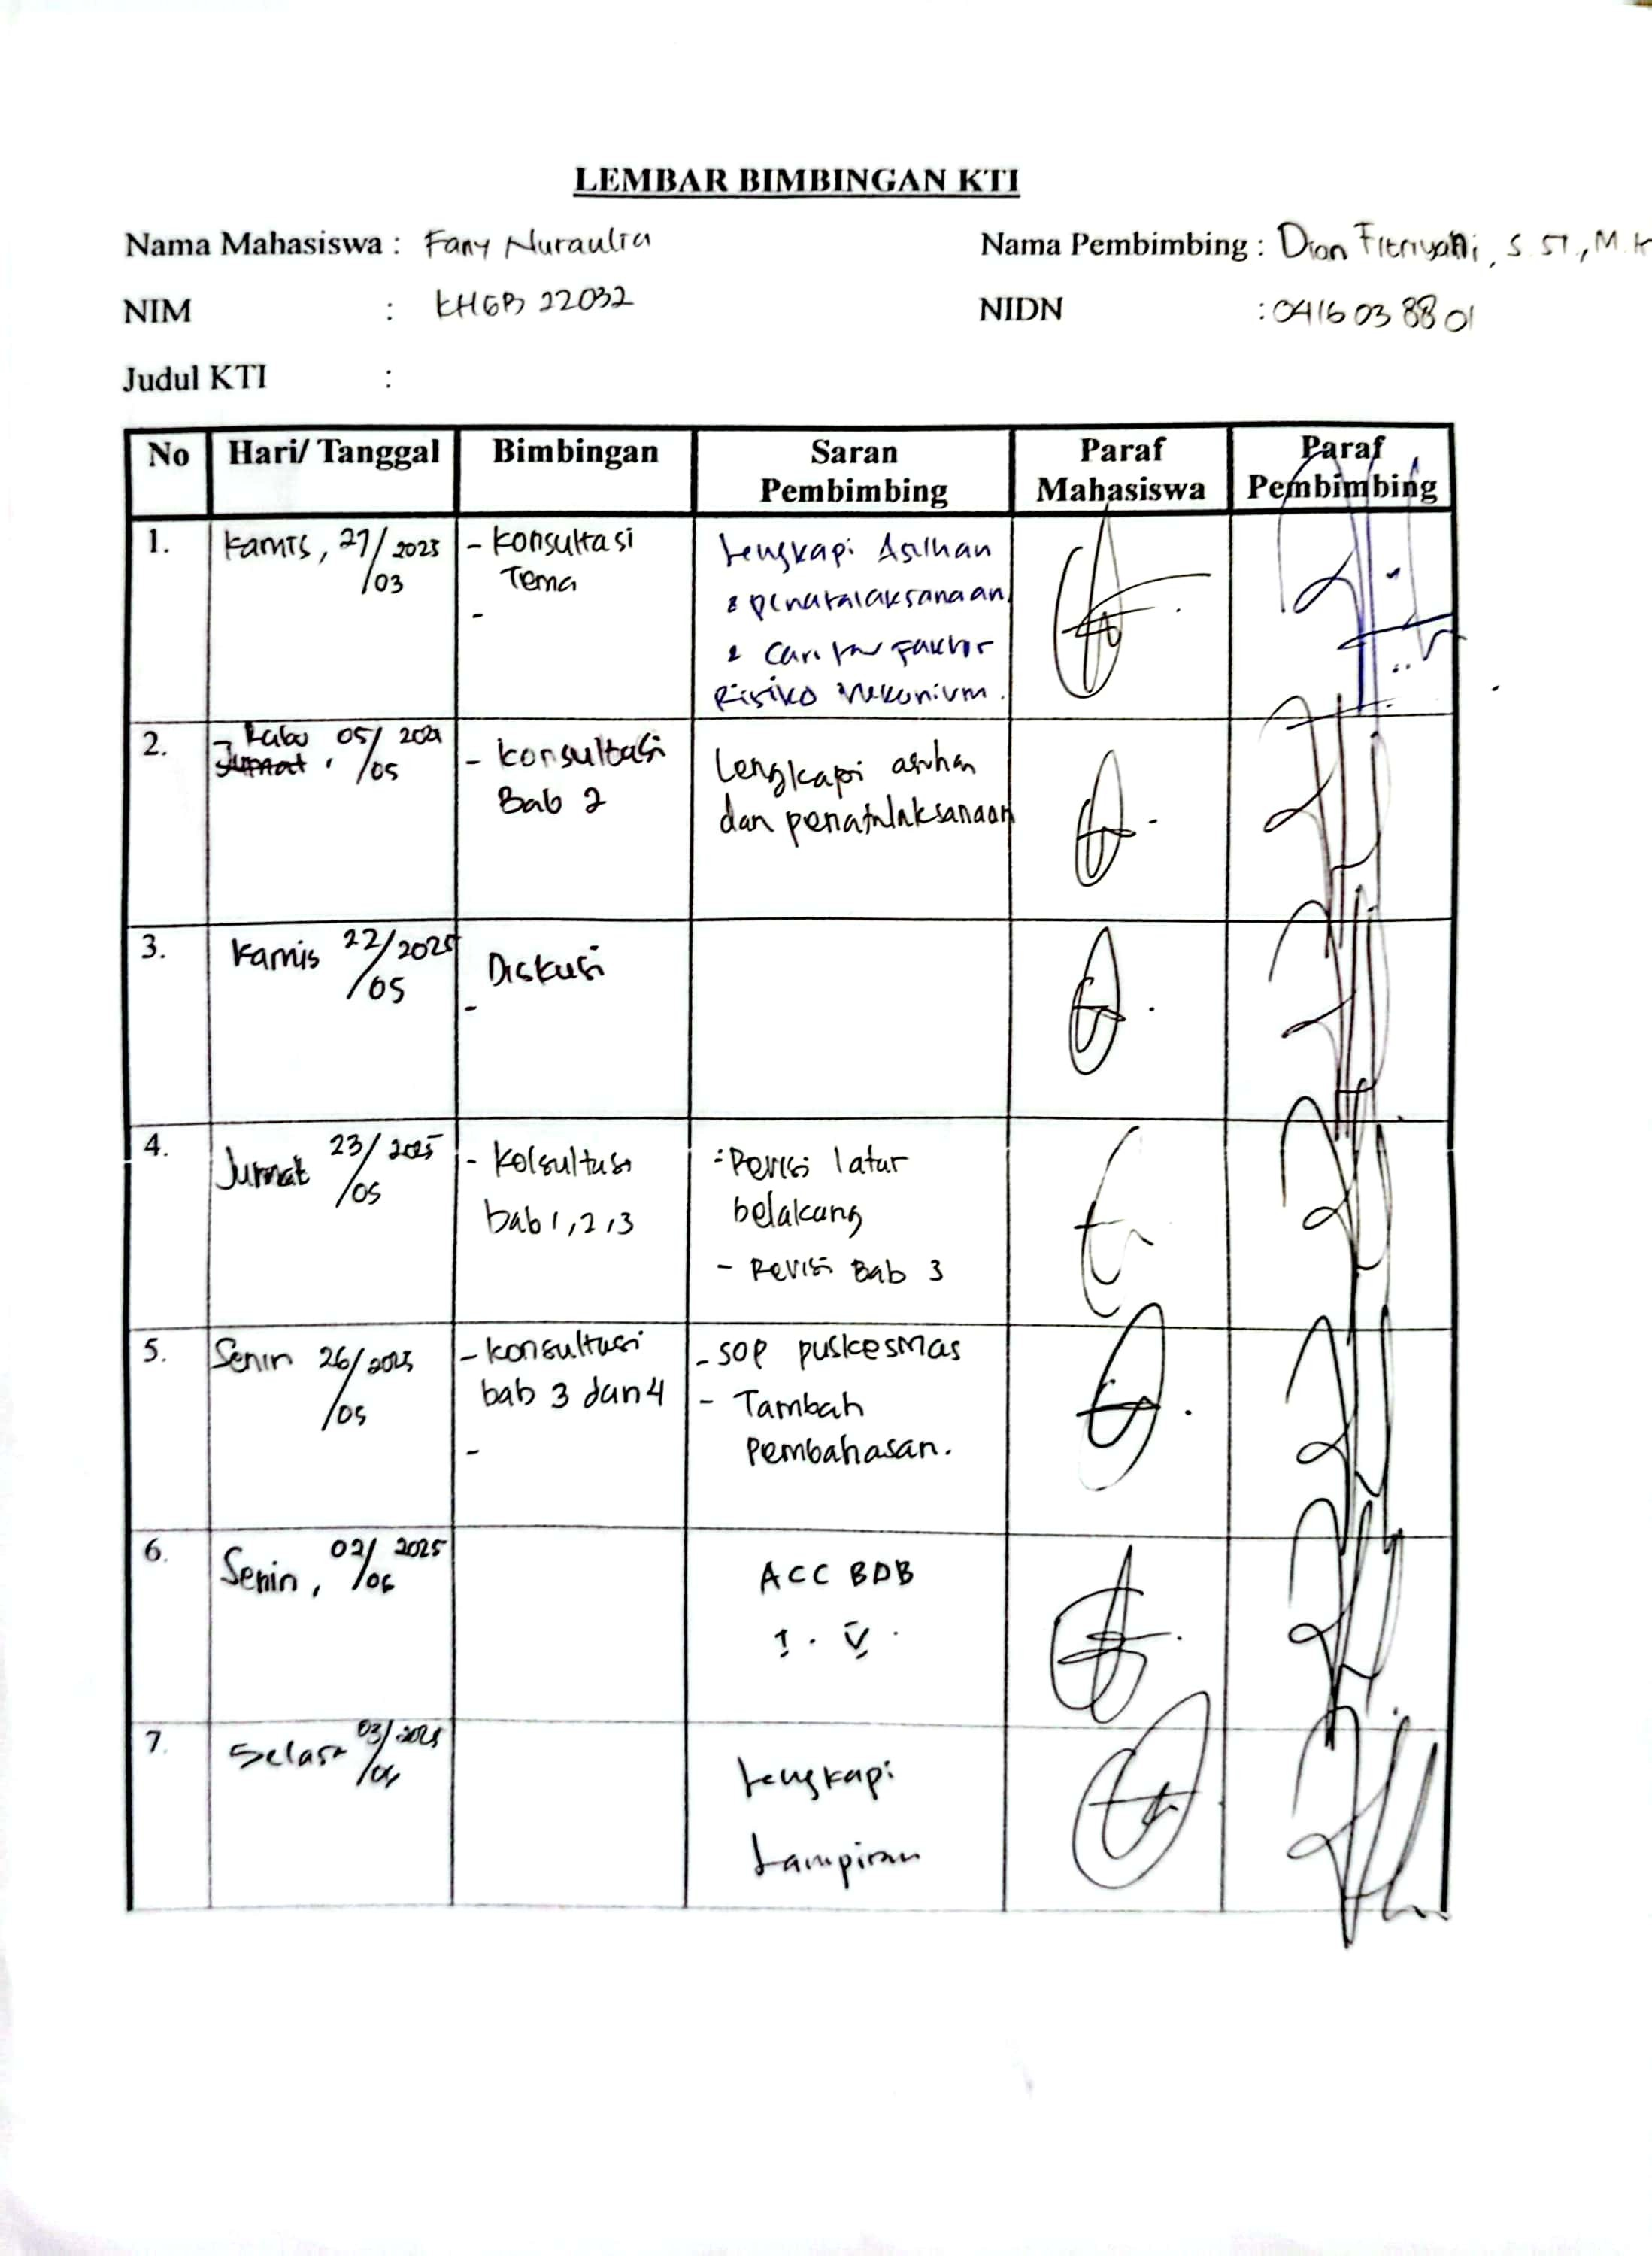 LEMBAR BIMBINGAN KTI
Nama Mahasiswa : Fany Nuraulia
Nama Pembimbing : Dian Fitriyani, S.ST., M.K
NIM : KHGB 22032
NIDN : 0416038801
Judul KTI :
No Hari/ Tanggal Bimbingan Saran Pembimbing Paraf Mahasiswa Paraf Pembimbing
1. Kamis, 27/03 2025
- Konsultasi
Tema
-
Lengkapi Asuhan
& penatalaksanaan
& Cari Faktor
Risiko Mekonium.
2. Rabu 05/05
- Konsultasi
Bab 2
Lengkapi asuhan
dan penatalaksanaan
3. Kamis 22/05 2025
Diskusi
-
4. Jumat 23/05 2025
- Kolsultasi
bab 1, 2, 3
- Revisi latar
belakang
- Revisi Bab 3
5. Senin 26/05 2025
- Konsultasi
bab 3 dan 4
-
- SOP puskesmas
- Tambah
Pembahasan.
6. Senin, 02/06 2025
ACC BAB
I . V .
7. Selasa 03/06 2025
Lengkapi
Lampiran